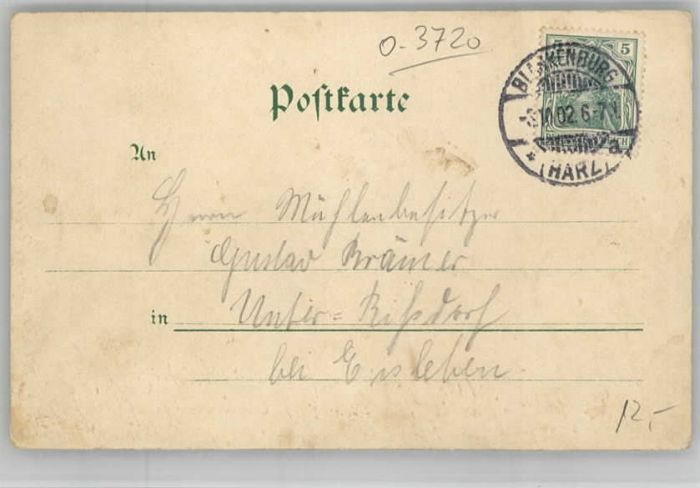 0-3720
5
BLANKENBURG
02. 6-7N
a
* (HARZ)
Postkarte
An
Herrn Mühlenbesitzer
Gustav Krämer
in Unter-Rißdorf
bei Eisleben
12,-